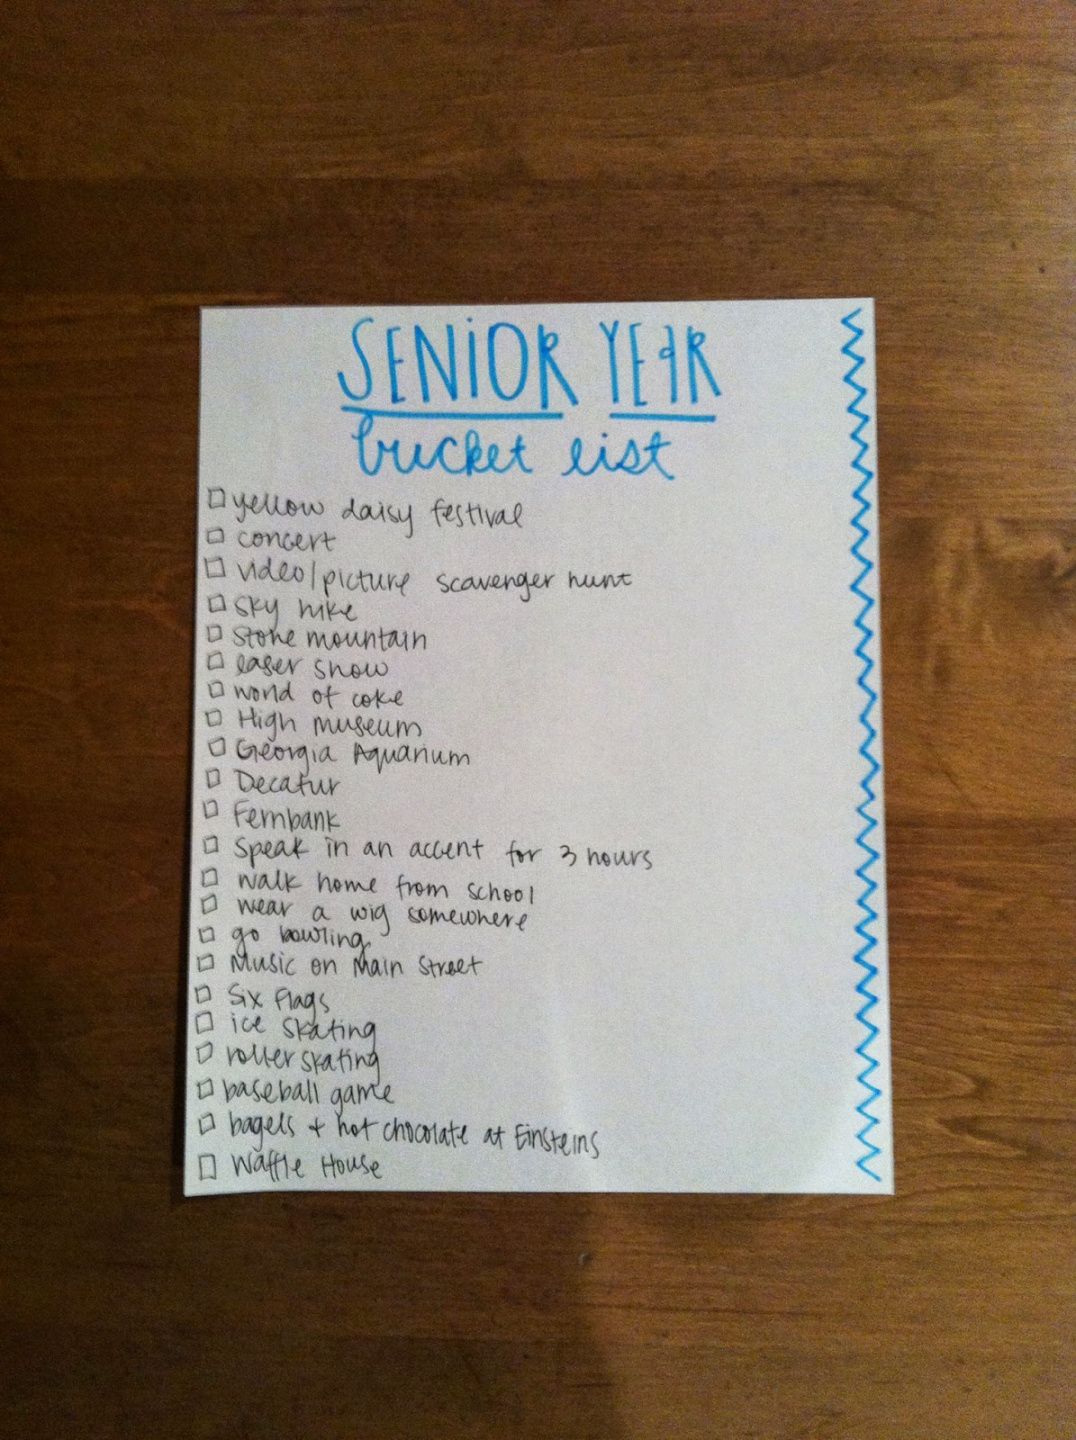 SENiOR YEAR
bucket list
yellow daisy festival
concert
video/picture scavenger hunt
sky hike
stone mountain
laser show
world of coke
High museum
Georgia Aquarium
Decatur
Fernbank
Speak in an accent for 3 hours
walk home from school
wear a wig somewhere
go bowling
Music on Main Street
Six Flags
ice skating
roller skating
baseball game
bagels + hot chocolate at Einsteins
Waffle House